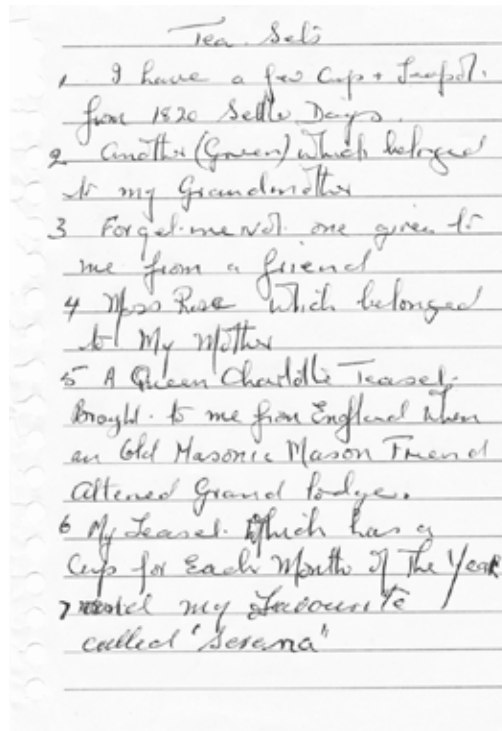 Tea Sets
1 I have a few Cup + Teapot.
from 1820 Settle Days.
2 Another (Green) which belonged
to my Grandmother
3 Forget-me Not. one given to
me from a friend
4 Moss Rose which belonged
to My Mother
5 A Queen Charlotte Teaset.
Brought. to me from England when
an Old Masonic Mason Friend
Attened Grand Lodge.
6 My Teaset. Which has a
Cup for Each Month of The Year
7 my Favourite
called "Serena"